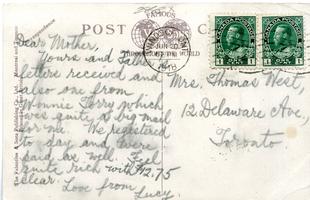 FAMOUS
POST C
THROUGHOUT THE WORLD
CANADA POSTAGE CANADA POSTAGE
1 1 1 1
Dear Mother,
Yours and
letters received and
also one from
Minnie Terry which
was quite a big mail
for me. We registered
to day and were
paid as well. Feel
quite rich with $12.75
clear. Love from
Lucy.
Mrs. Thomas West,
12 Delaware Ave,
Toronto
The Valentine & Sons Publishing Co., Ltd., Montreal and